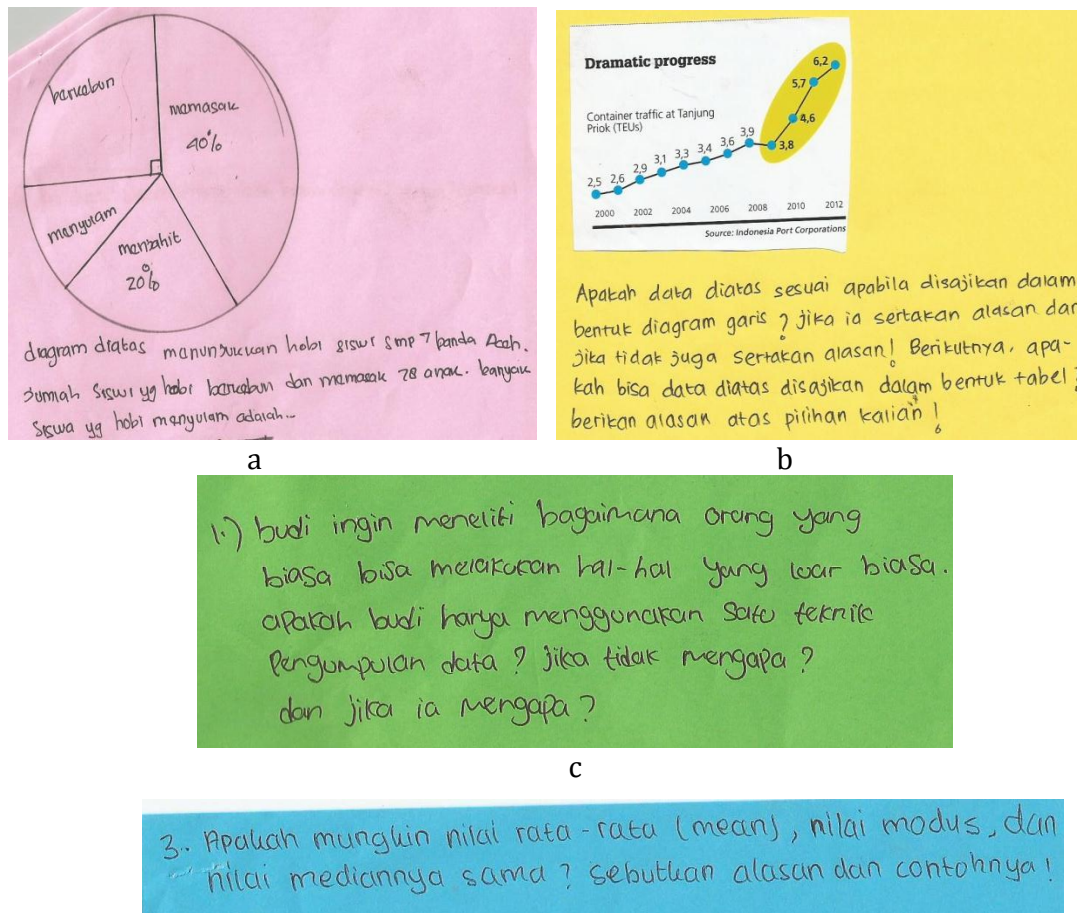 berkebun
memasak
40%
menyulam
menjahit
20%
diagram diatas menunjukkan hobi siswi smp 7 banda Aceh.
Jumlah siswi yg hobi berkebun dan memasak 78 anak. banyak
siswa yg hobi menyulam adalah...
a
Dramatic progress
Container traffic at Tanjung
Priok (TEUs)
2,5 2,6 2,9 3,1 3,3 3,4 3,6 3,9 3,8 4,6 5,7 6,2
2000 2002 2004 2006 2008 2010 2012
Source: Indonesia Port Corporations
Apakah data diatas sesuai apabila disajikan dalam
bentuk diagram garis? jika ia sertakan alasan dan
jika tidak juga sertakan alasan! Berikutnya, apa-
kah bisa data diatas disajikan dalam bentuk tabel?
berikan alasan atas pilihan kalian!
b
1.) budi ingin meneliti bagaimana orang yang
biasa bisa melakukan hal-hal yang luar biasa.
apakah budi hanya menggunakan satu teknik
Pengumpulan data? jika tidak mengapa?
dan jika ia mengapa?
c
3. Apakah mungkin nilai rata-rata (mean), nilai modus, dan
nilai mediannya sama? sebutkan alasan dan contohnya!